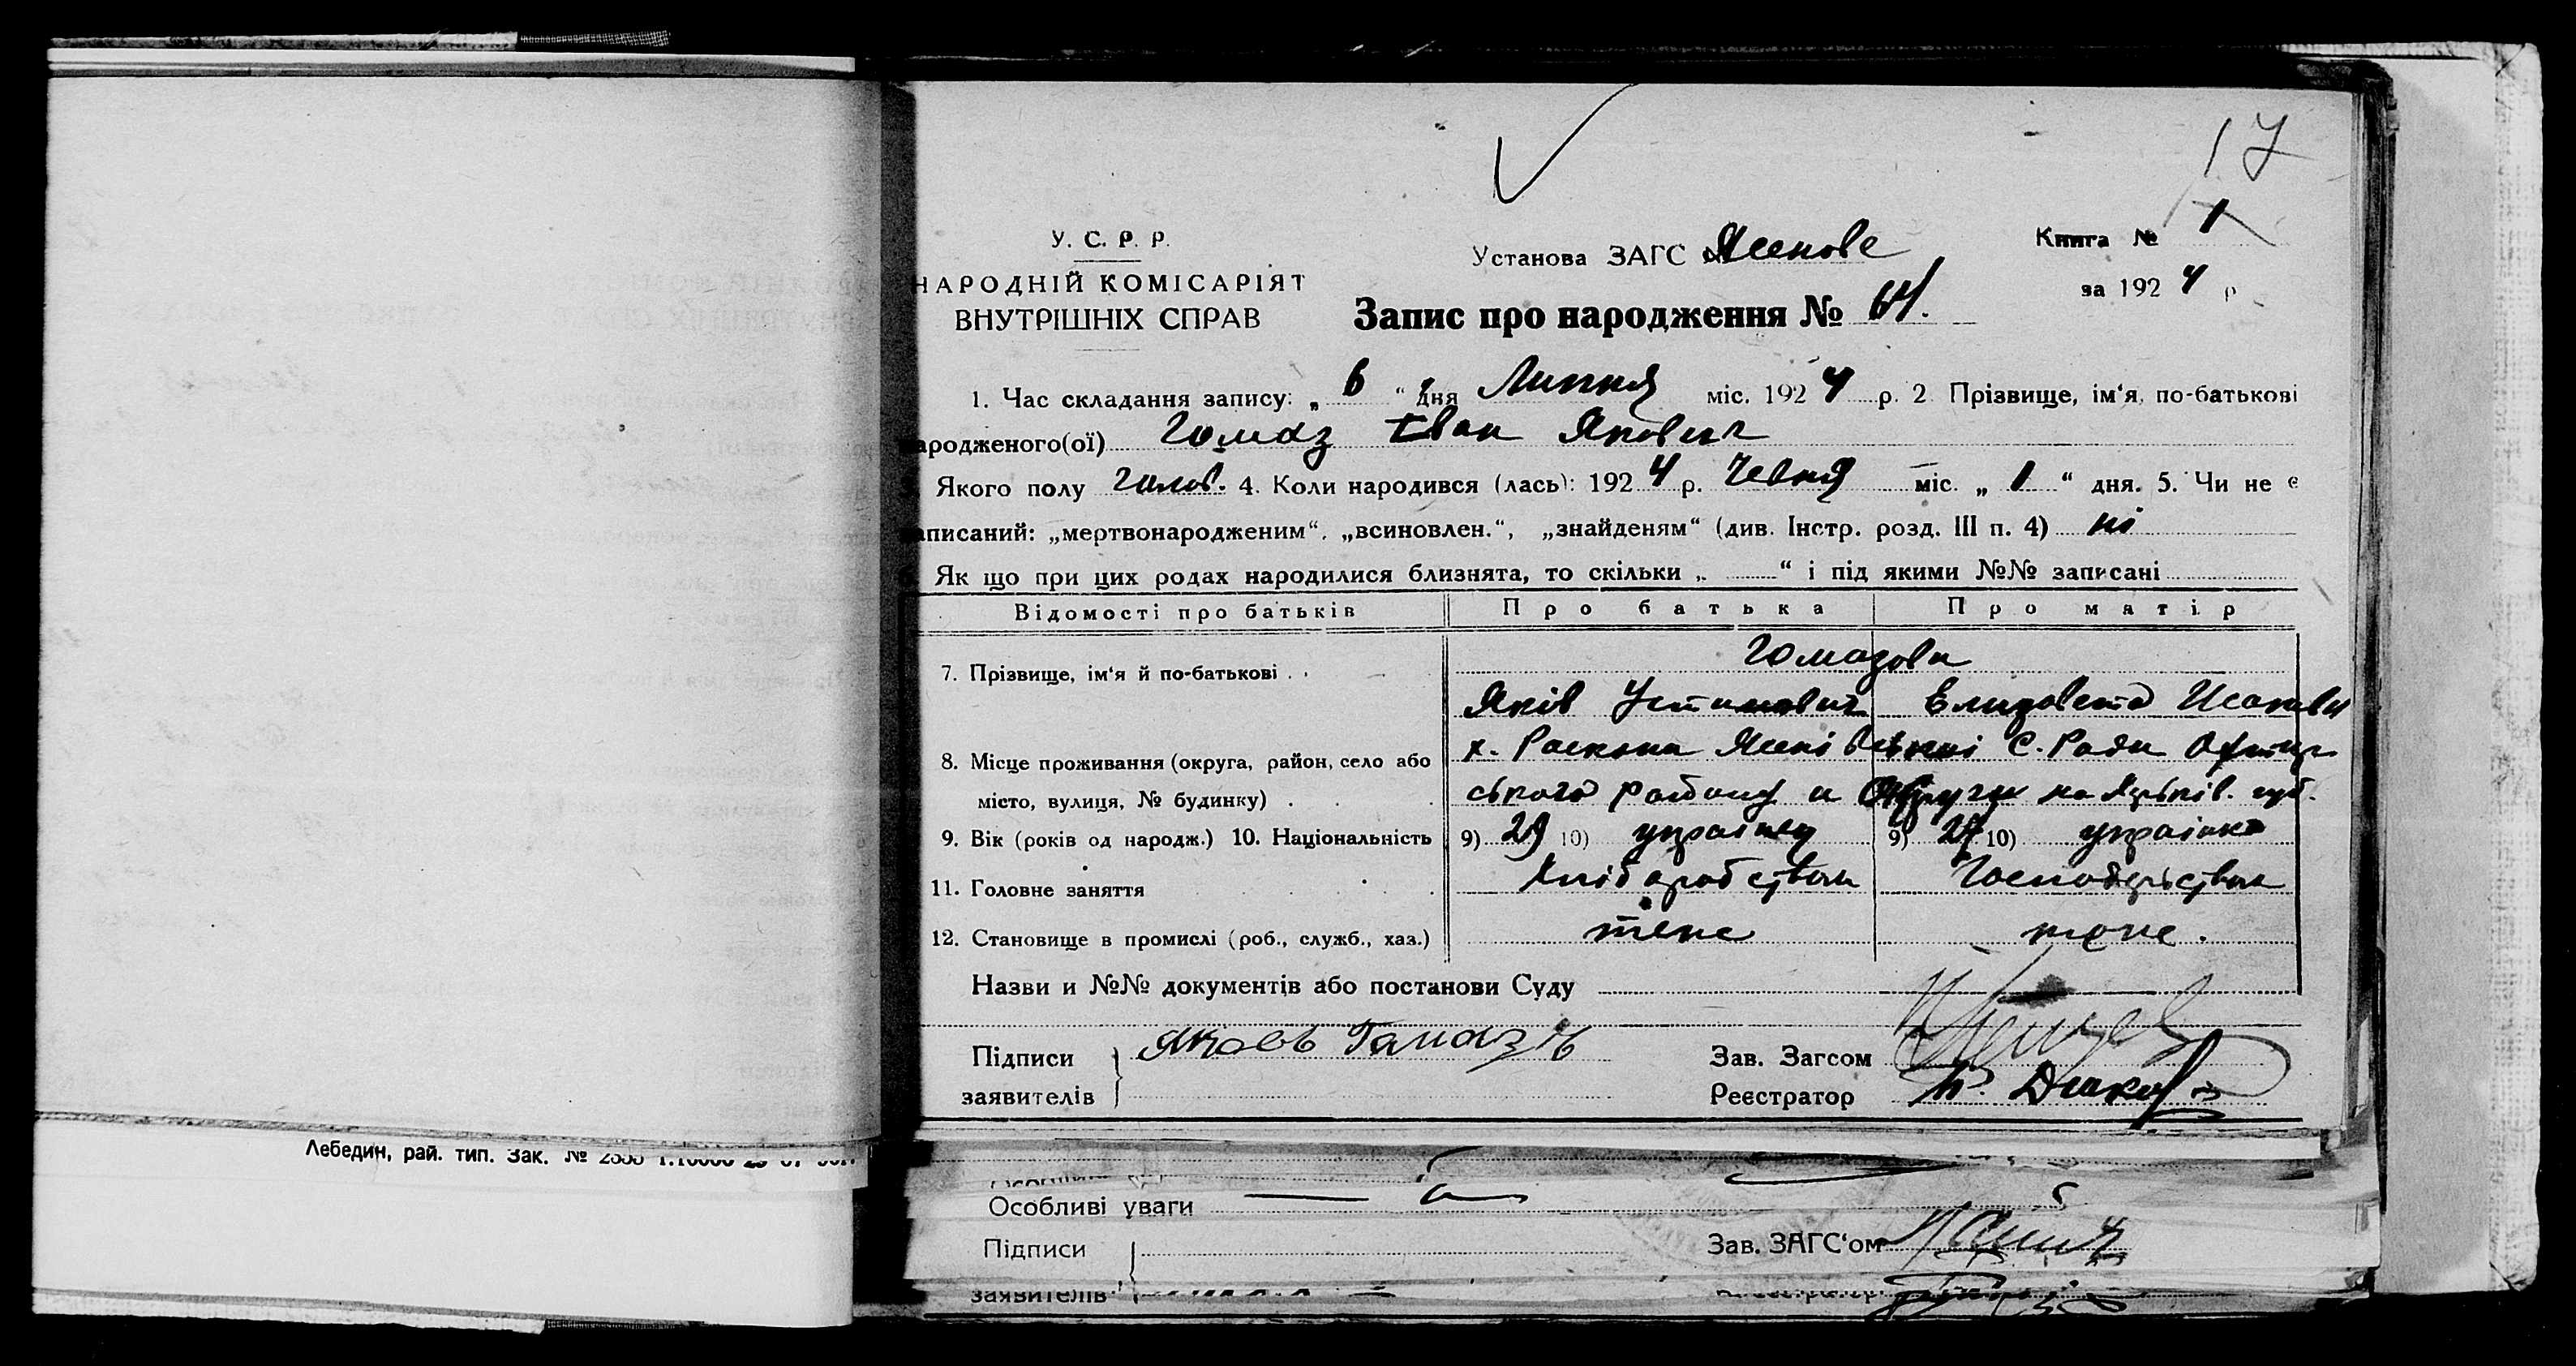 17
У. С. Р. Р.
НАРОДНІЙ КОМІСАРІЯТ
ВНУТРІШНІХ СПРАВ
Установа ЗАГС Ясенове
Книга № 1
за 1924 р
Запис про народження № 64.
1. Час складання запису: „ 6 “ дня Липня міс. 1924 р. 2 Прізвище, ім‘я, по-батькові
ародженого(ої) Гомаз Іван Якович
Якого полу чолов. 4. Коли народився (лась): 1924 р. Червня міс. „ 1 “ дня. 5. Чи не є
аписаний: „мертвонародженим“, „всиновлен.“, „знайденям“ (див. Інстр. розд. III п. 4) ні
Як що при цих родах народилися близнята, то скільки „ “ і під якими №№ записані
Відомості про батьків Про батька Про матір
7. Прізвище, ім‘я й по-батькові Гомазови
Яків Устинович Елизавета Исаковн
8. Місце проживання (округа, район, село або
місто, вулиця, № будинку)
х. С. Ради Охтир
ського району и Округи на губ.
9. Вік (років од народж.) 10. Національність 9) 29 10) українец 9) 27 10) українка
11. Головне заняття Хліборобством Господарством
12. Становище в промислі (роб., служб., хаз.) теж
Назви и №№ документів або постанови Суду
Підписи
заявителів
Яковъ Гамазъ
Зав. Загсом
Реєстратор
Лебедин, рай. тип. Зак. №
Особливі уваги
Підписи
Зав. ЗАГС‘ом
заявителів